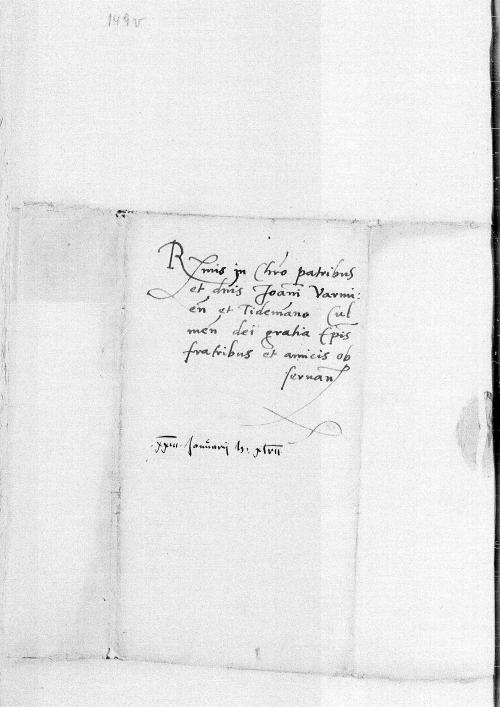 149v
Rmis in Chro patribus
et dnis Joani Varmi:
en et Tidemano Cul
men dei gratia Epis
fratribus et amicis ob
servan
xxvii Januarij
xlvii